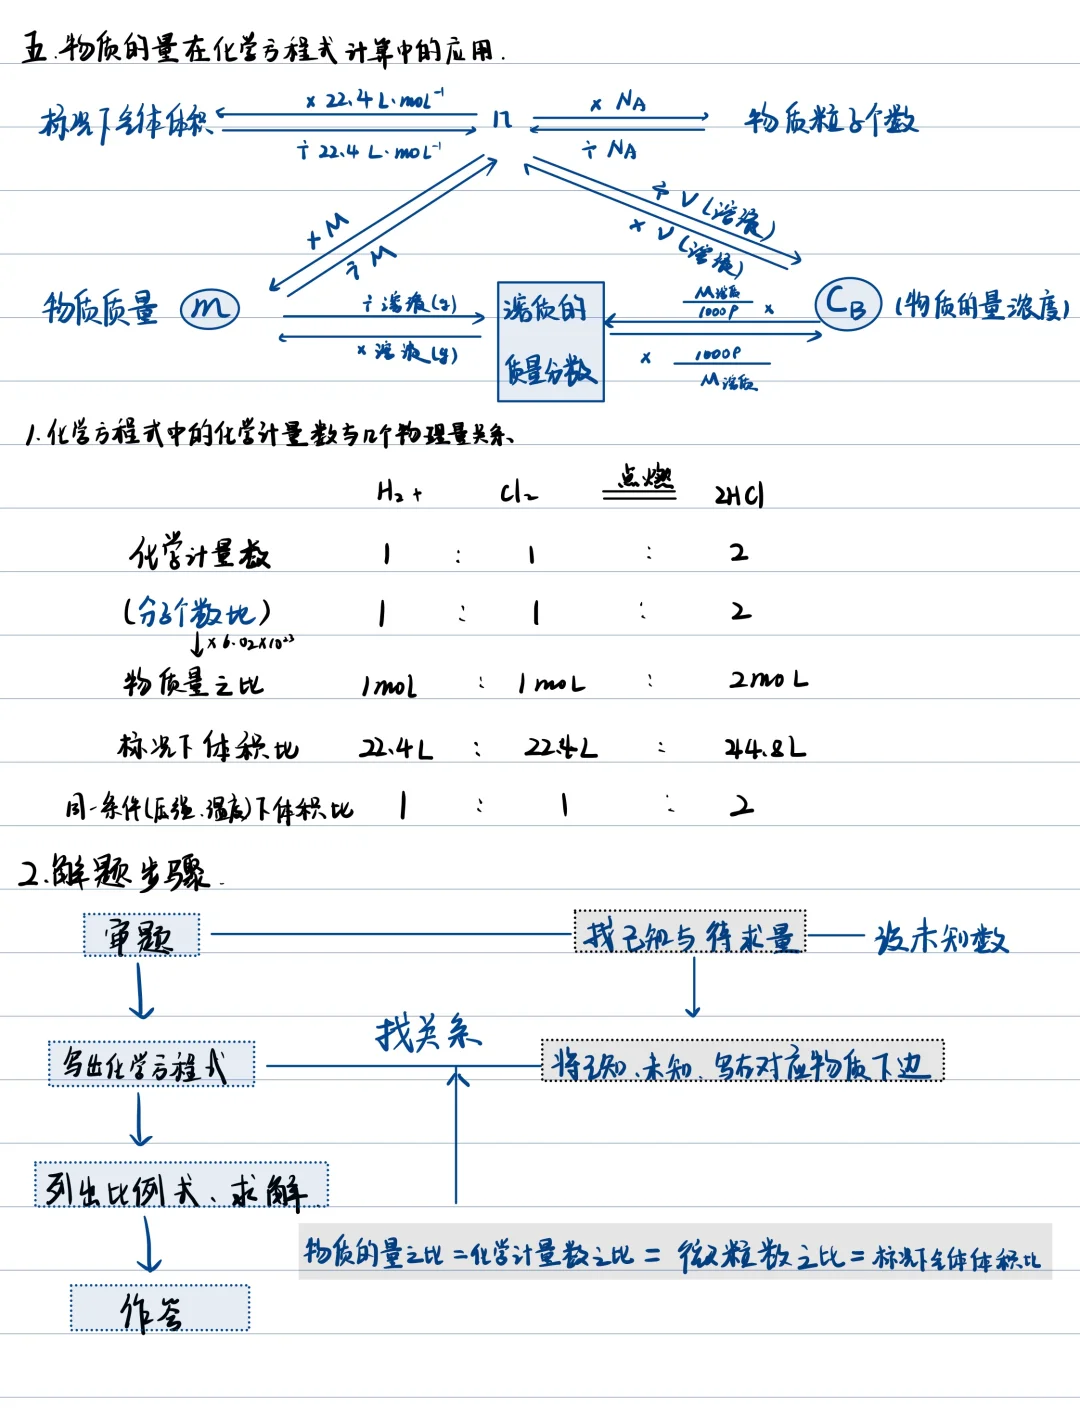 五.物质的量在化学方程式计算中的应用.
× 22.4 L·mol⁻¹
× NA
标况下气体体积
n
物质粒子个数
÷ 22.4 L·mol⁻¹
÷ NA
÷ V(溶液)
× V(溶液)
× M
÷ M
物质质量 m
÷ 溶液(g)
× 溶液(g)
溶质的
质量分数
M溶质/1000ρ ×
× 1000ρ/M溶质
CB (物质的量浓度)
1.化学方程式中的化学计量数与几个物理量关系、
H₂ + Cl₂ 点燃 2HCl
化学计量数 1 : 1 : 2
(分子个数比) 1 : 1 : 2
↓× 6.02×10²³
物质量之比 1mol : 1mol : 2mol
标况下体积比 22.4L : 22.4L : 44.8L
同一条件(压强、温度)下体积比 1 : 1 : 2
2.解题步骤.
审题
找已知与待求量
设未知数
找关系
写出化学方程式
将已知、未知、写在对应物质下边
列出比例式、求解.
物质的量之比=化学计量数之比= 微粒数之比=标况下气体体积比
作答